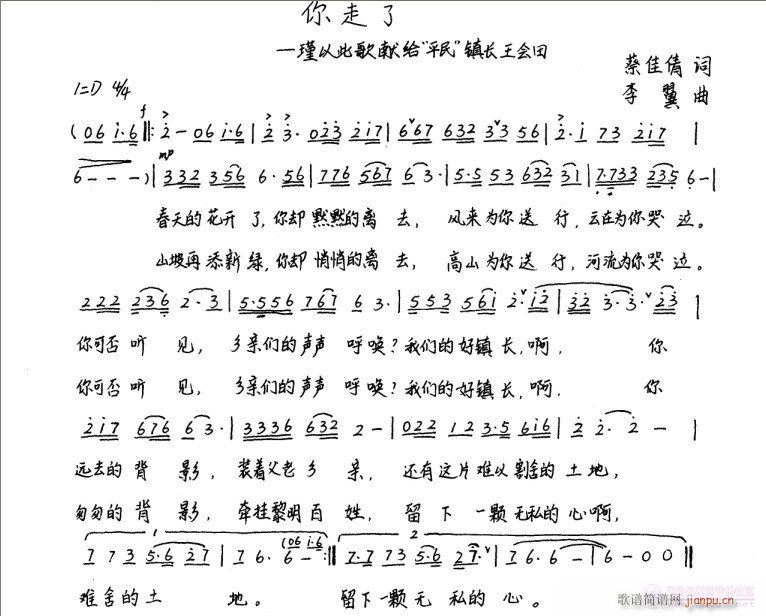 你走了
—瑾以此歌献给“平民”镇长王会田
蔡佳倩 词
1=D 4/4
李翼 曲
f
(06 i·6 ‖: 2 - 06 i·6 | 2 3· 023 217 | 667 632 3 3 56 | 2·1 73 217 |
mp
6 - - -) | 332 356 6·56 | 776 567 63· | 5·5 53 632 31 | 7·733 235 6 - |
春天的花开了,你却默默的离去, 风来为你送行,云在为你哭泣。
山坡再添新绿,你却悄悄的离去, 高山为你送行,河流为你哭泣。
222 236 2·3 | 5·556 767 63· | 553 56i 2·12 | 32 3·3·23 |
你可否听见, 乡亲们的声声呼唤?我们的好镇长,啊, 你
你可否听见, 乡亲们的声声呼唤?我们的好镇长,啊, 你
217 676 63· | 3336 632 2 - | 022 123·5 6i6 | 2 2·2 - |
远去的背影, 装着父老乡亲, 还有这片难以割舍的土地,
匆匆的背影, 牵挂黎明百姓, 留下一颗无私的心啊,
1 2
(06 i·6
773 5·6 27 | 76·6 - :‖ 7·7 73 5·6 27· | 76·6 - | 6 - 00 ‖
难舍的土地。 留下一颗无私的心。
歌谱简谱网
www.jianpu.cn